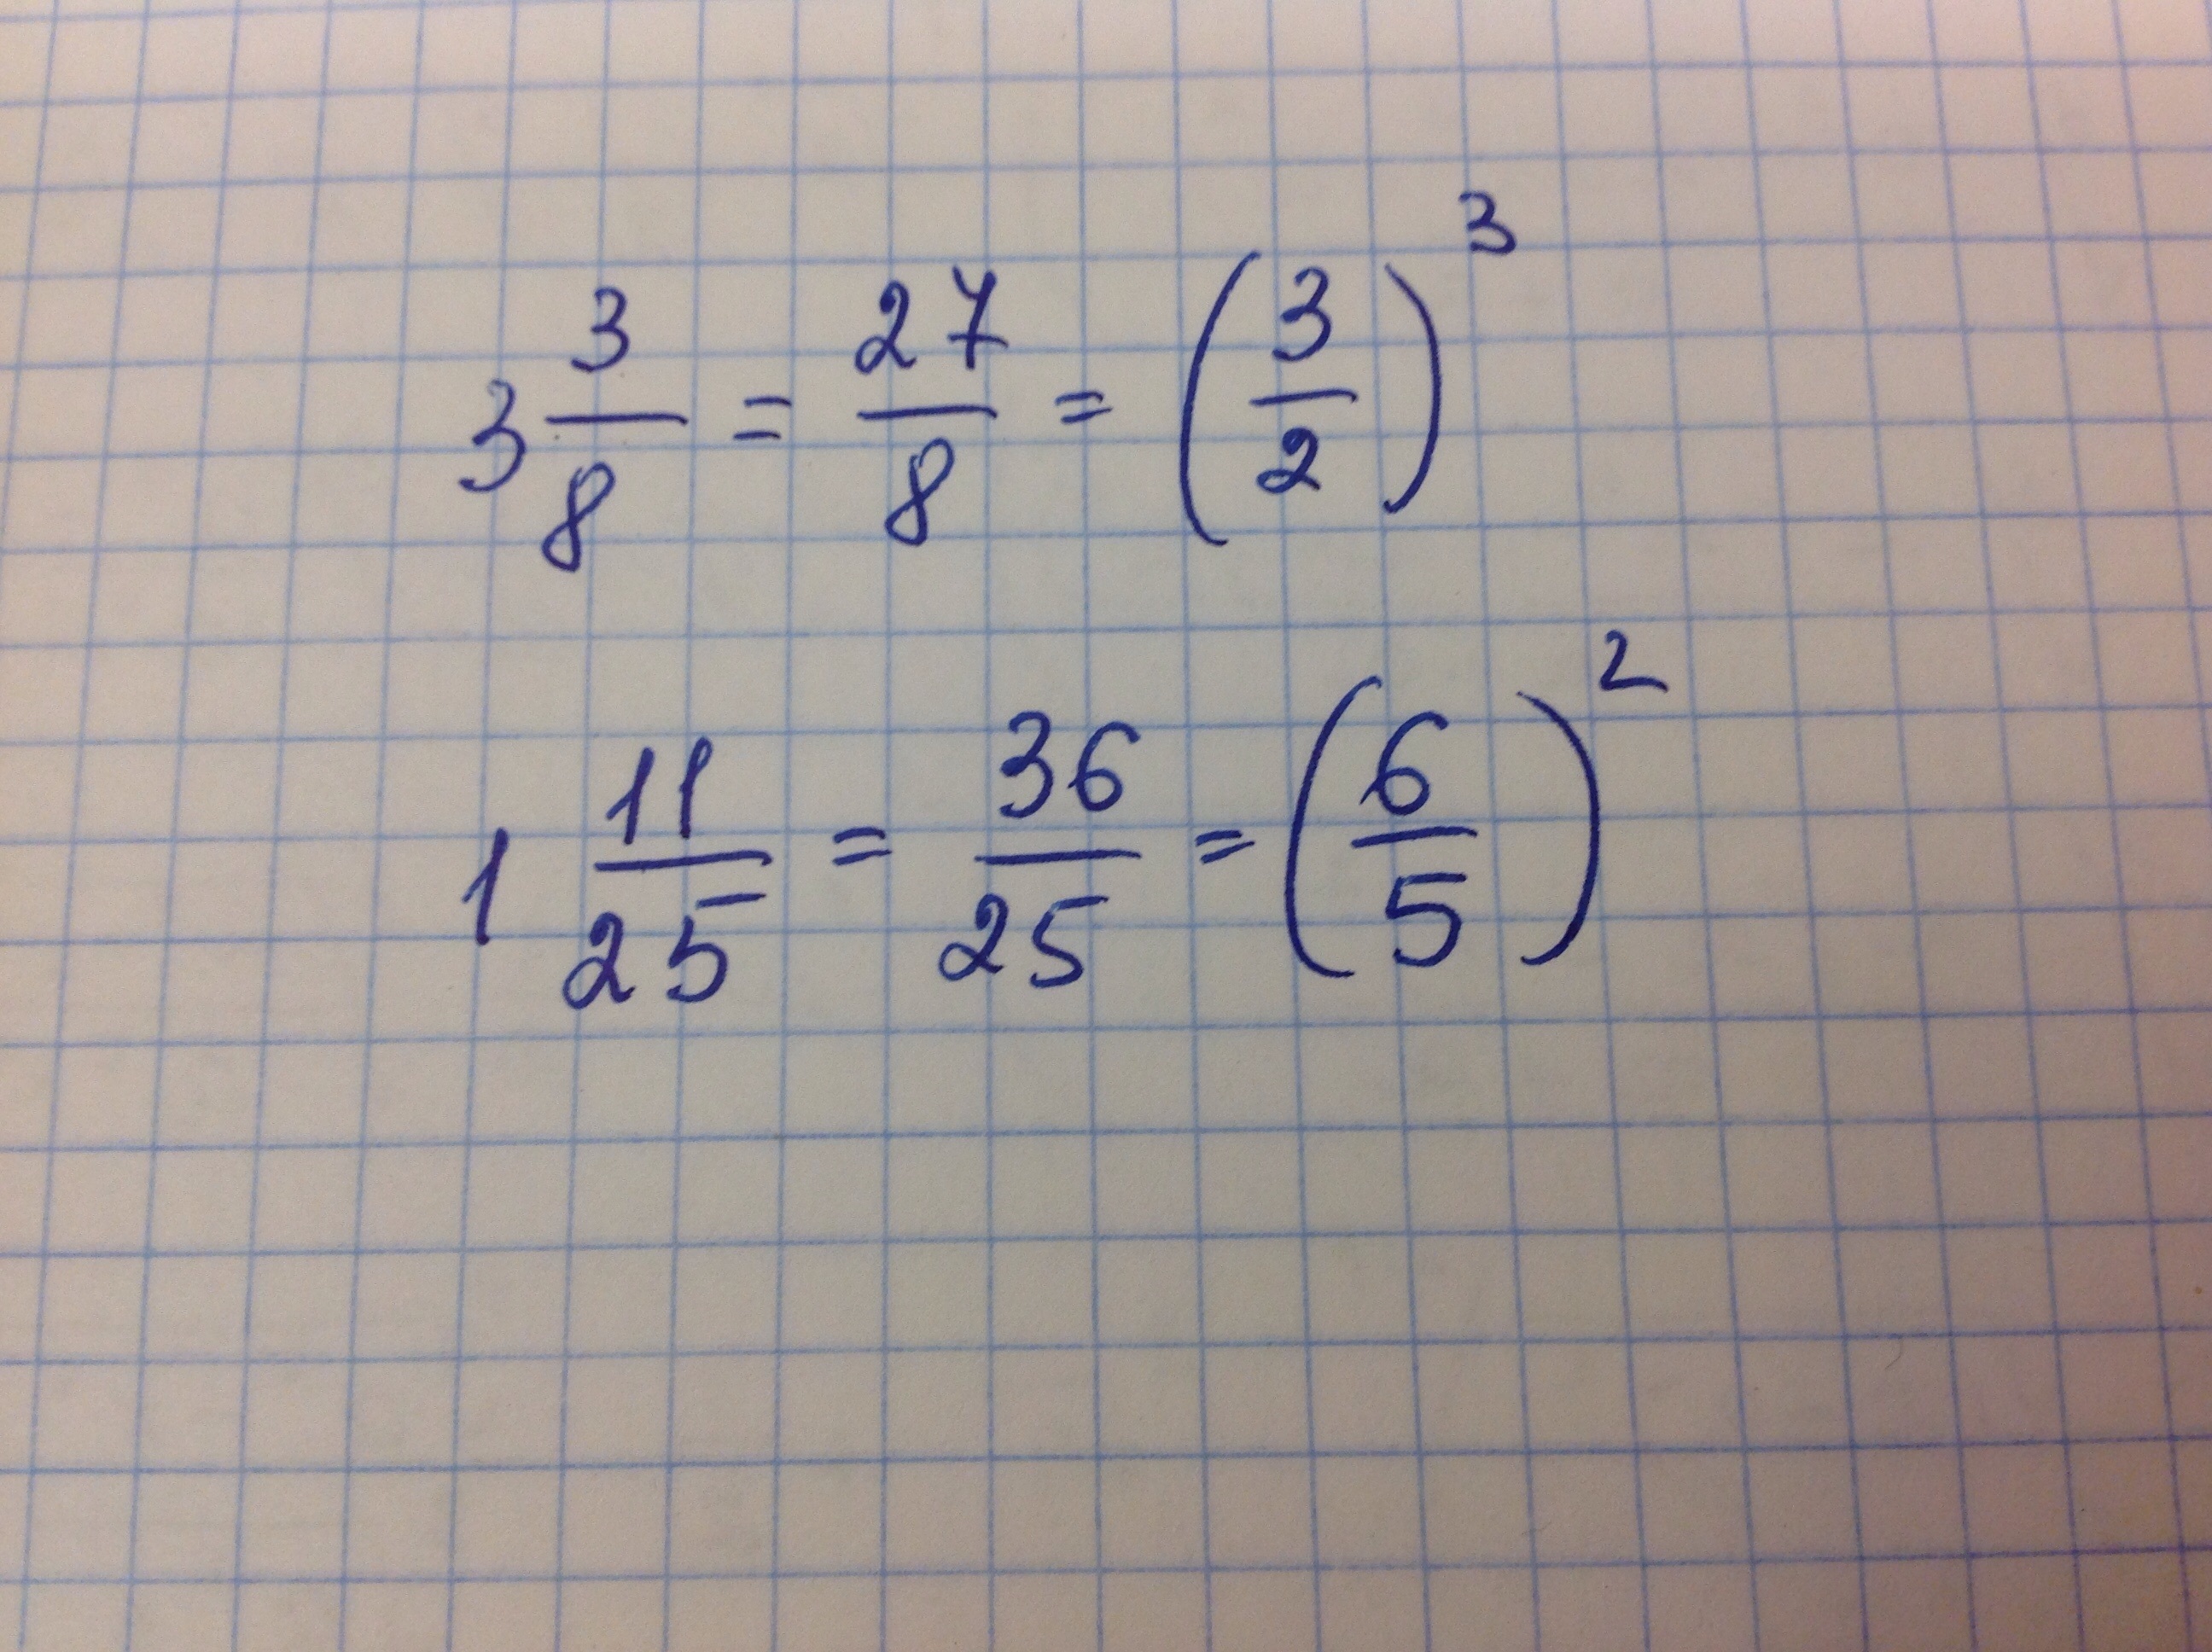 3 3/8 = 27/8 = (3/2)³
1 11/25 = 36/25 = (6/5)²